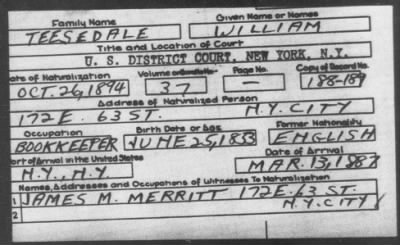 Family Name Given Name or Names
TEESEDALE WILLIAM
Title and Location of Court
U. S. DISTRICT COURT, NEW YORK, N.Y.
Date of Naturalization Volume or Bundle No. Page No. Copy of Record No.
OCT. 26, 1894 37 — 188-189
Address of Naturalized Person
172 E. 63 ST. N.Y. CITY
Occupation Birth Date or Age Former Nationality
BOOKKEEPER JUNE 25, 1853 ENGLISH
Port of Arrival in the United States Date of Arrival
N.Y., N.Y MAR. 13, 1883
Names, Addresses and Occupations of Witnesses To Naturalization
1 JAMES M. MERRITT 172 E. 63 ST.
N.Y. CITY
2